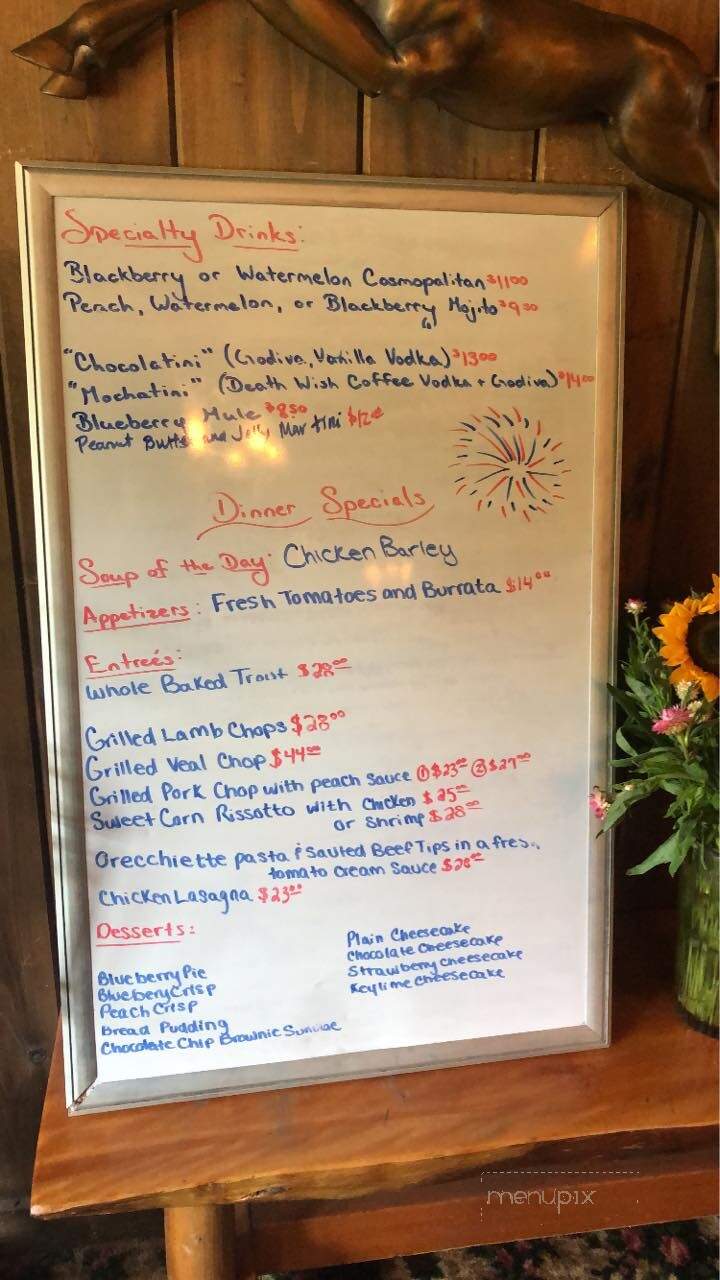 Specialty Drinks:
Blackberry or Watermelon Cosmopolitan $11 00
Peach, Watermelon, or Blackberry Mojito $9 50
"Chocolatini" (Godiva, Vanilla Vodka) $13 00
"Mochatini" (Death Wish Coffee Vodka + Godiva) $14 00
Blueberry Mule $8 50
Peanut Butter and Jelly Martini $12
Dinner Specials
Soup of the Day: Chicken Barley
Appetizers: Fresh Tomatoes and Burrata $14 00
Entreés:
Whole Baked Trout $28 00
Grilled Lamb Chops $28 00
Grilled Veal Chop $44 00
Grilled Pork Chop with peach sauce ① $23 00 ② $27 00
Sweet Corn Rissotto with Chicken $25 00
or Shrimp $28 00
Orecchiette pasta & Sauted Beef Tips in a fres..
tomato cream sauce $28 00
Chicken Lasagna $23 00
Desserts:
Blueberry Pie
Blueberry Crisp
Peach Crisp
Bread Pudding
Chocolate Chip Brownie Sundae
Plain Cheesecake
Chocolate Cheesecake
Strawberry Cheesecake
Keylime Cheesecake
menupix